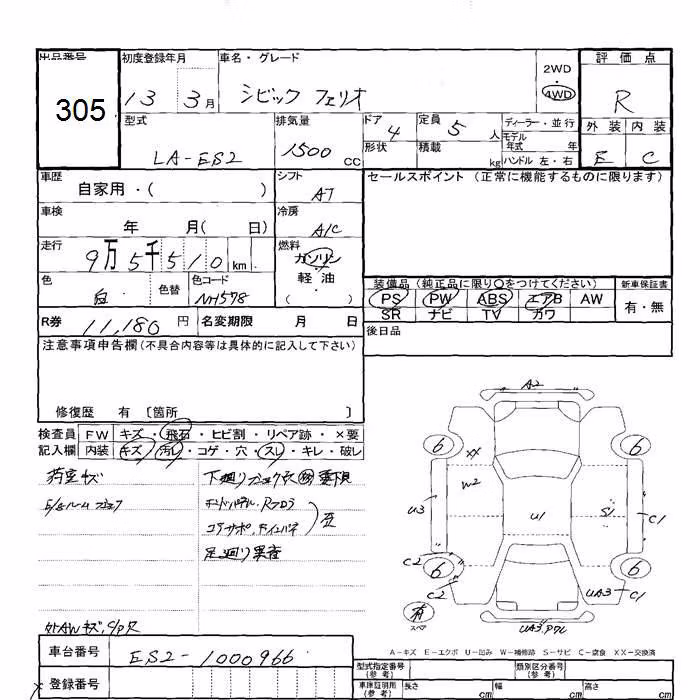 出品番号
305
初度登録年月
13 3月
車名・グレード
シビック フェリオ
2WD
4WD
評価点
R
外装 内装
E C
型式
LA-ES2
排気量
1500 cc
ドア
4
定員
5 人
形状
積載
kg
ディーラー・並行
モデル
年式 年
ハンドル 左・右
車歴
自家用・( )
シフト
AT
セールスポイント (正常に機能するものに限ります)
車検
年 月( 日)
冷房
A/C
走行
9万5千510 km
燃料
ガソリン
軽・油
( )
色
白
色替
色コード
NH578
装備品 (純正品に限り○をつけてください)
新車保証書
PS PW ABS エアB AW
SR ナビ TV カワ
有・無
R券
11,180 円
名変期限 月 日
後日品
注意事項申告欄 (不具合内容等は具体的に記入して下さい)
修復歴 有 〔箇所 〕
検査員
記入欄
FW キズ・飛石・ヒビ割・リペア跡・×要
内装 キズ・汚レ・コゲ・穴・スレ・キレ・破レ
荷室キズ
コアサポ、
足廻り
A2
6 6 6 6
XX
W2
U3
U1
S1
C1
C2
C2
UA3 C1
有
スペア
A-キズ E-エクボ U-凹み W-補修跡 S-サビ C-腐食 XX-交換済
車台番号
ES2-1000966
登録番号
型式指定番号
(参考)
類別区分番号
(参考)
車庫証明用
(参考)
長さ cm
幅 cm
高さ cm